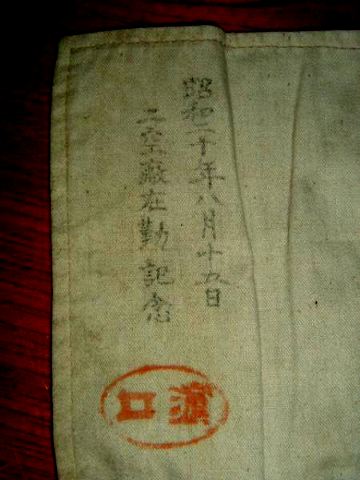 昭和二十年八月十五日
二空廠在勤記念
漢口